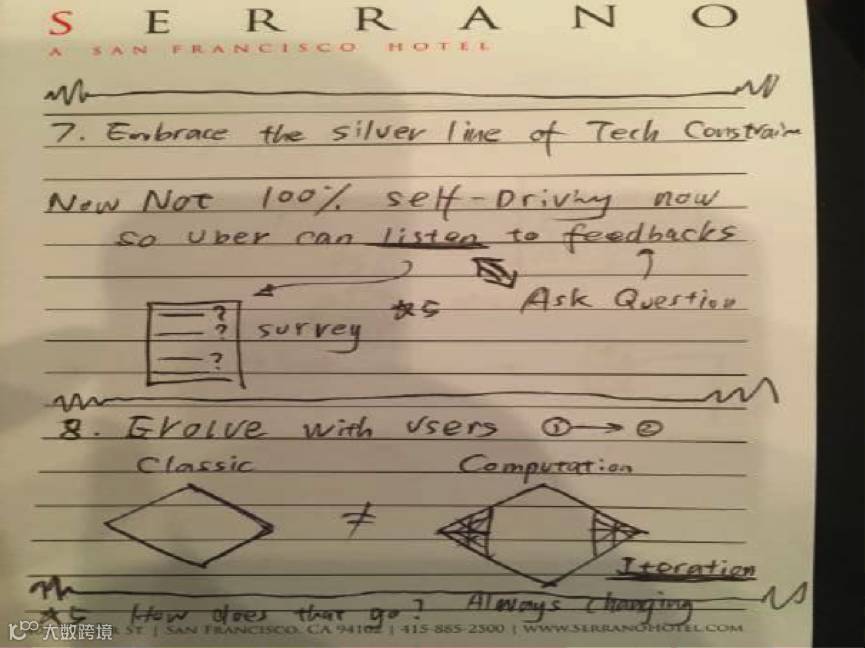 SERRANO
A SAN FRANCISCO HOTEL
7. Embrace the silver line of Tech Constrain
Now Not 100% self-Driving now
so Uber can listen to feedbacks
Ask Question
*5
?
?
?
survey
8. Evolve with users ① → ②
Classic
Computation
≠
Iteration
*5 How does that go? Always changing
ST | SAN FRANCISCO, CA 94102 | 415-885-2500 | WWW.SERRANOHOTEL.COM
大数跨境